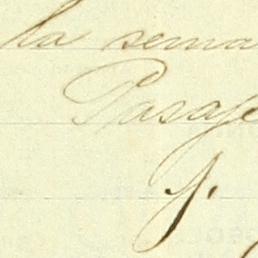 la sema
Pasaje
J.